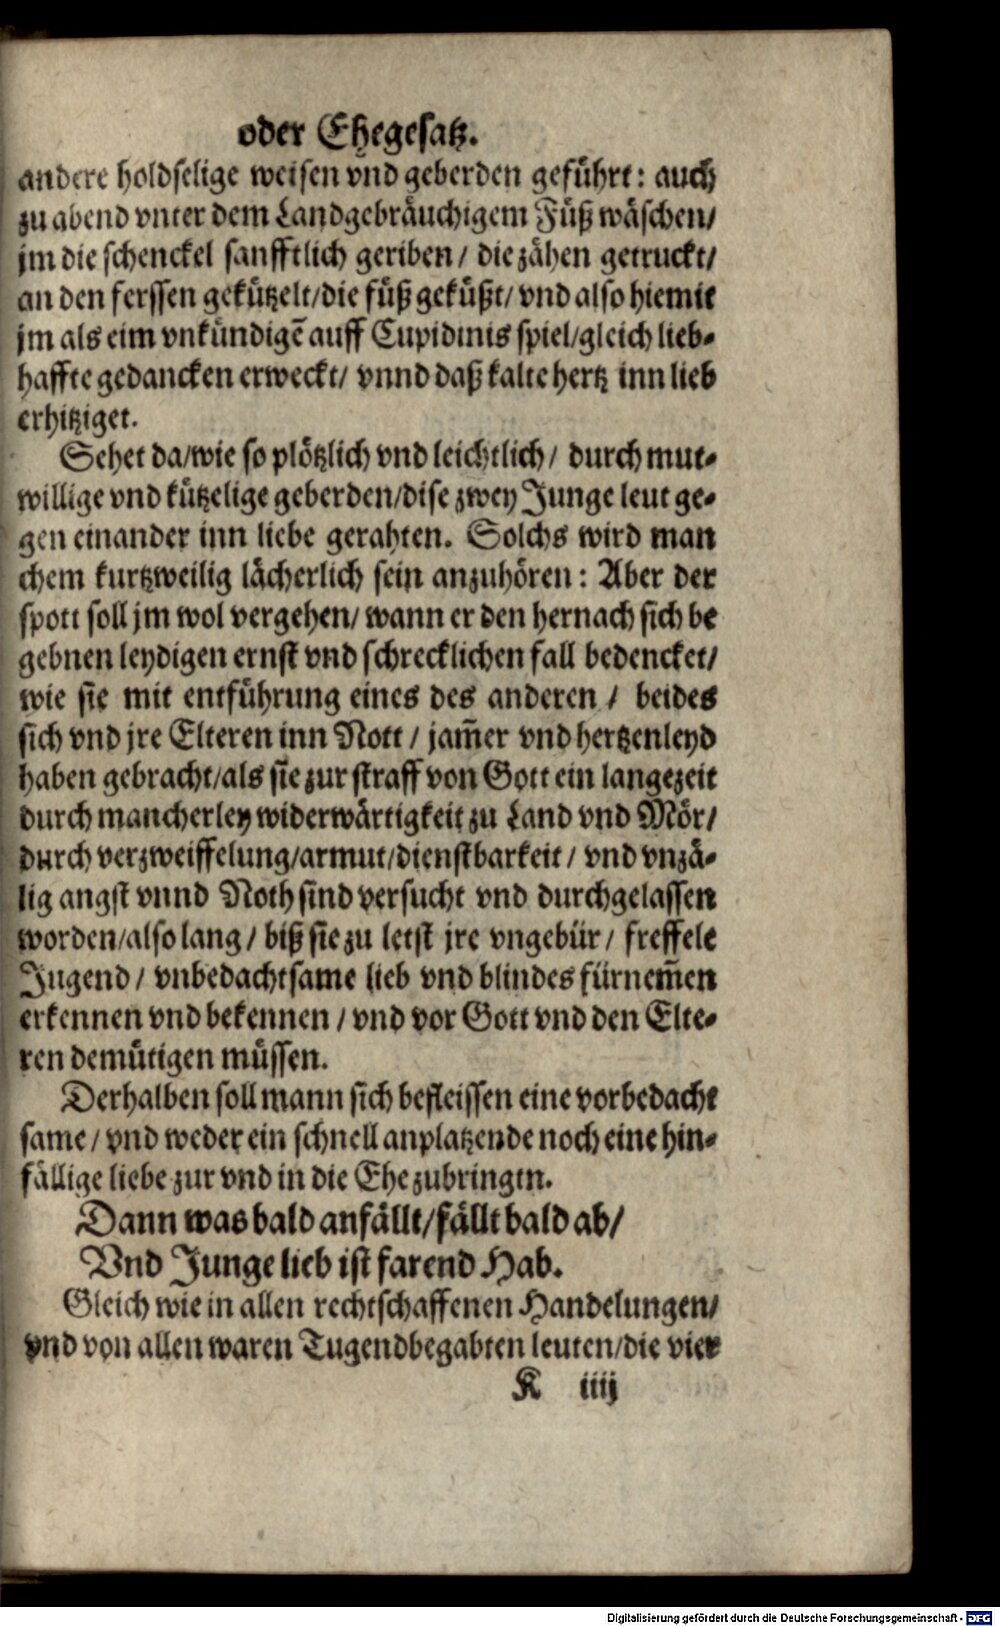 oder Ehegesatz.
andere holdselige weisen vnd geberden geführt: auch
zu abend vnter dem Landgebräuchigem Füß wäschen/
jm die schenckel sanfftlich geriben/ die zähen getruckt/
an den ferssen gekützelt/die füß geküßt/ vnd also hiemit
jm als eim vnkündigē auff Cupidinis spiel/gleich lieb-
haffte gedancken erweckt/ vnnd daß kalte hertz inn lieb
erhitziget.
Sehet da/wie so plötzlich vnd leichtlich/ durch mut-
willige vnd kützelige geberden/dise zwey Junge leut ge-
gen einander inn liebe gerahten. Solchs wird man
chem kurtzweilig lächerlich sein anzuhören: Aber der
spott soll jm wol vergehen/ wann er den hernach sich be
gebnen leydigen ernst vnd schrecklichen fall bedencket/
wie sie mit entführung eines des anderen / beides
sich vnd jre Elteren inn Nott / jam̄er vnd hertzenleyd
haben gebracht/als sie zur straff von Gott ein langezeit
durch mancherley widerwärtigkeit zu Land vnd Mör/
durch verzweiffelung/armut/dienstbarkeit/ vnd vnzä-
lig angst vnnd Noth sind versucht vnd durchgelassen
worden/also lang/ biß sie zu letst jre vngebür/ freffele
Jugend/ vnbedachtsame lieb vnd blindes fürnem̄en
erkennen vnd bekennen / vnd vor Gott vnd den Elte-
ren demütigen müssen.
Derhalben soll mann sich befleissen eine vorbedacht
same/ vnd weder ein schnell anplatzende noch eine hin-
fällige liebe zur vnd in die Ehe zubringen.
Dann was bald anfällt/fällt bald ab/
Vnd Junge lieb ist farend Hab.
Gleich wie in allen rechtschaffenen Handelungen/
vnd von allen waren Tugendbegabten leuten/die vier
K iiij
Digitalisierung gefördert durch die Deutsche Forschungsgemeinschaft - DFG